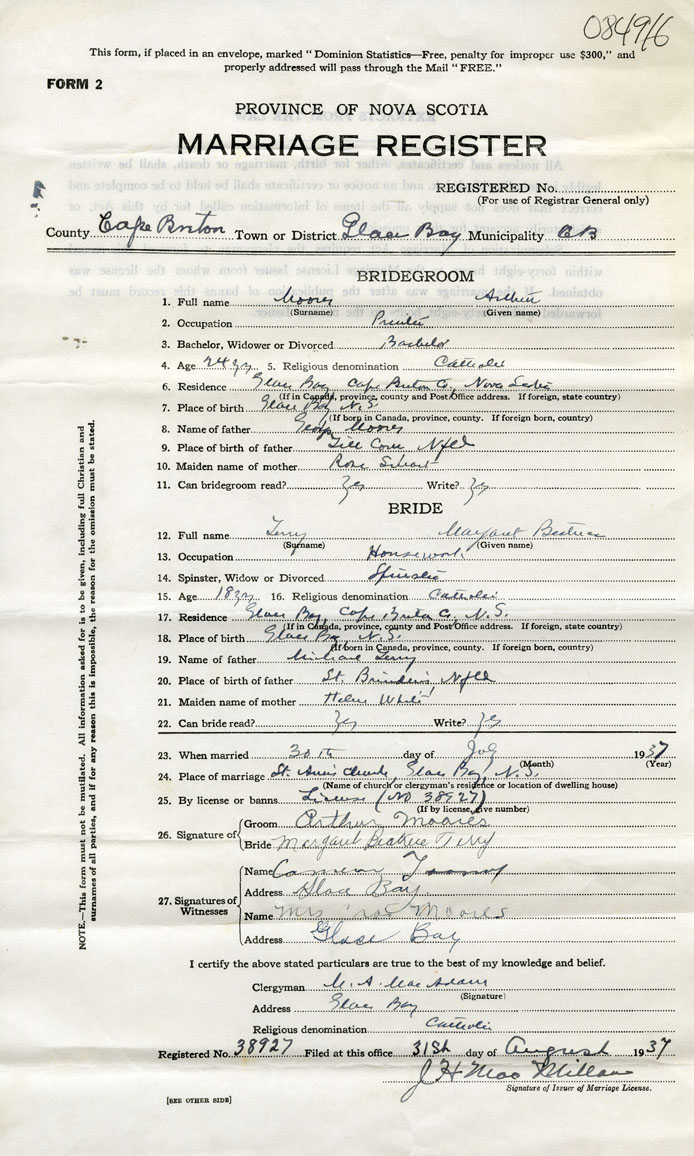 084916
This form, if placed in an envelope, marked "Dominion Statistics—Free, penalty for improper use $300," and
properly addressed will pass through the Mail "FREE."
FORM 2
PROVINCE OF NOVA SCOTIA
MARRIAGE REGISTER
REGISTERED No.
(For use of Registrar General only)
County Cape Breton Town or District Glace Bay Municipality CB
BRIDEGROOM
1. Full name Moores Arthur
(Surname) (Given name)
2. Occupation
3. Bachelor, Widower or Divorced Bachelor
4. Age 24 yrs 5. Religious denomination Catholic
6. Residence Glace Bay Cape Breton Co, Nova Scotia
(If in Canada, province, county and Post Office address. If foreign, state country)
7. Place of birth Glace Bay N.S.
(If born in Canada, province, county. If foreign born, country)
8. Name of father George Moores
9. Place of birth of father Nfld
10. Maiden name of mother Rose
11. Can bridegroom read? Yes Write? Yes
BRIDE
12. Full name Terry Margaret Beatrice
(Surname) (Given name)
13. Occupation Housework
14. Spinster, Widow or Divorced Spinster
15. Age 18 yrs 16. Religious denomination Catholic
17. Residence Glace Bay, Cape Breton Co, N.S.
(If in Canada, province, county and Post Office address. If foreign, state country)
18. Place of birth Glace Bay N.S.
(If born in Canada, province, county. If foreign born, country)
19. Name of father Michael Terry
20. Place of birth of father St. Nfld
21. Maiden name of mother Helen White
22. Can bride read? Yes Write? Yes
23. When married 30th day of July 1937
(Month) (Year)
24. Place of marriage St. Ann's Church, Glace Bay, N.S.
(Name of church or clergyman's residence or location of dwelling house)
25. By license or banns License (No 38927)
(If by license, give number)
26. Signature of Groom Arthur Moores
Bride Margaret Beatrice Terry
27. Signatures of Witnesses
Name
Address Glace Bay
Name Mrs Moores
Address Glace Bay
I certify the above stated particulars are true to the best of my knowledge and belief.
Clergyman M. A. MacAdam
(Signature)
Address Glace Bay
Religious denomination Catholic
Registered No. 38927 Filed at this office 31St day of August 1937
J H MacMillan
Signature of Issuer of Marriage License.
[SEE OTHER SIDE]
NOTE.—This form must not be mutilated. All information asked for is to be given, including full Christian and
surnames of all parties, and if for any reason this is impossible, the reason for the omission must be stated.